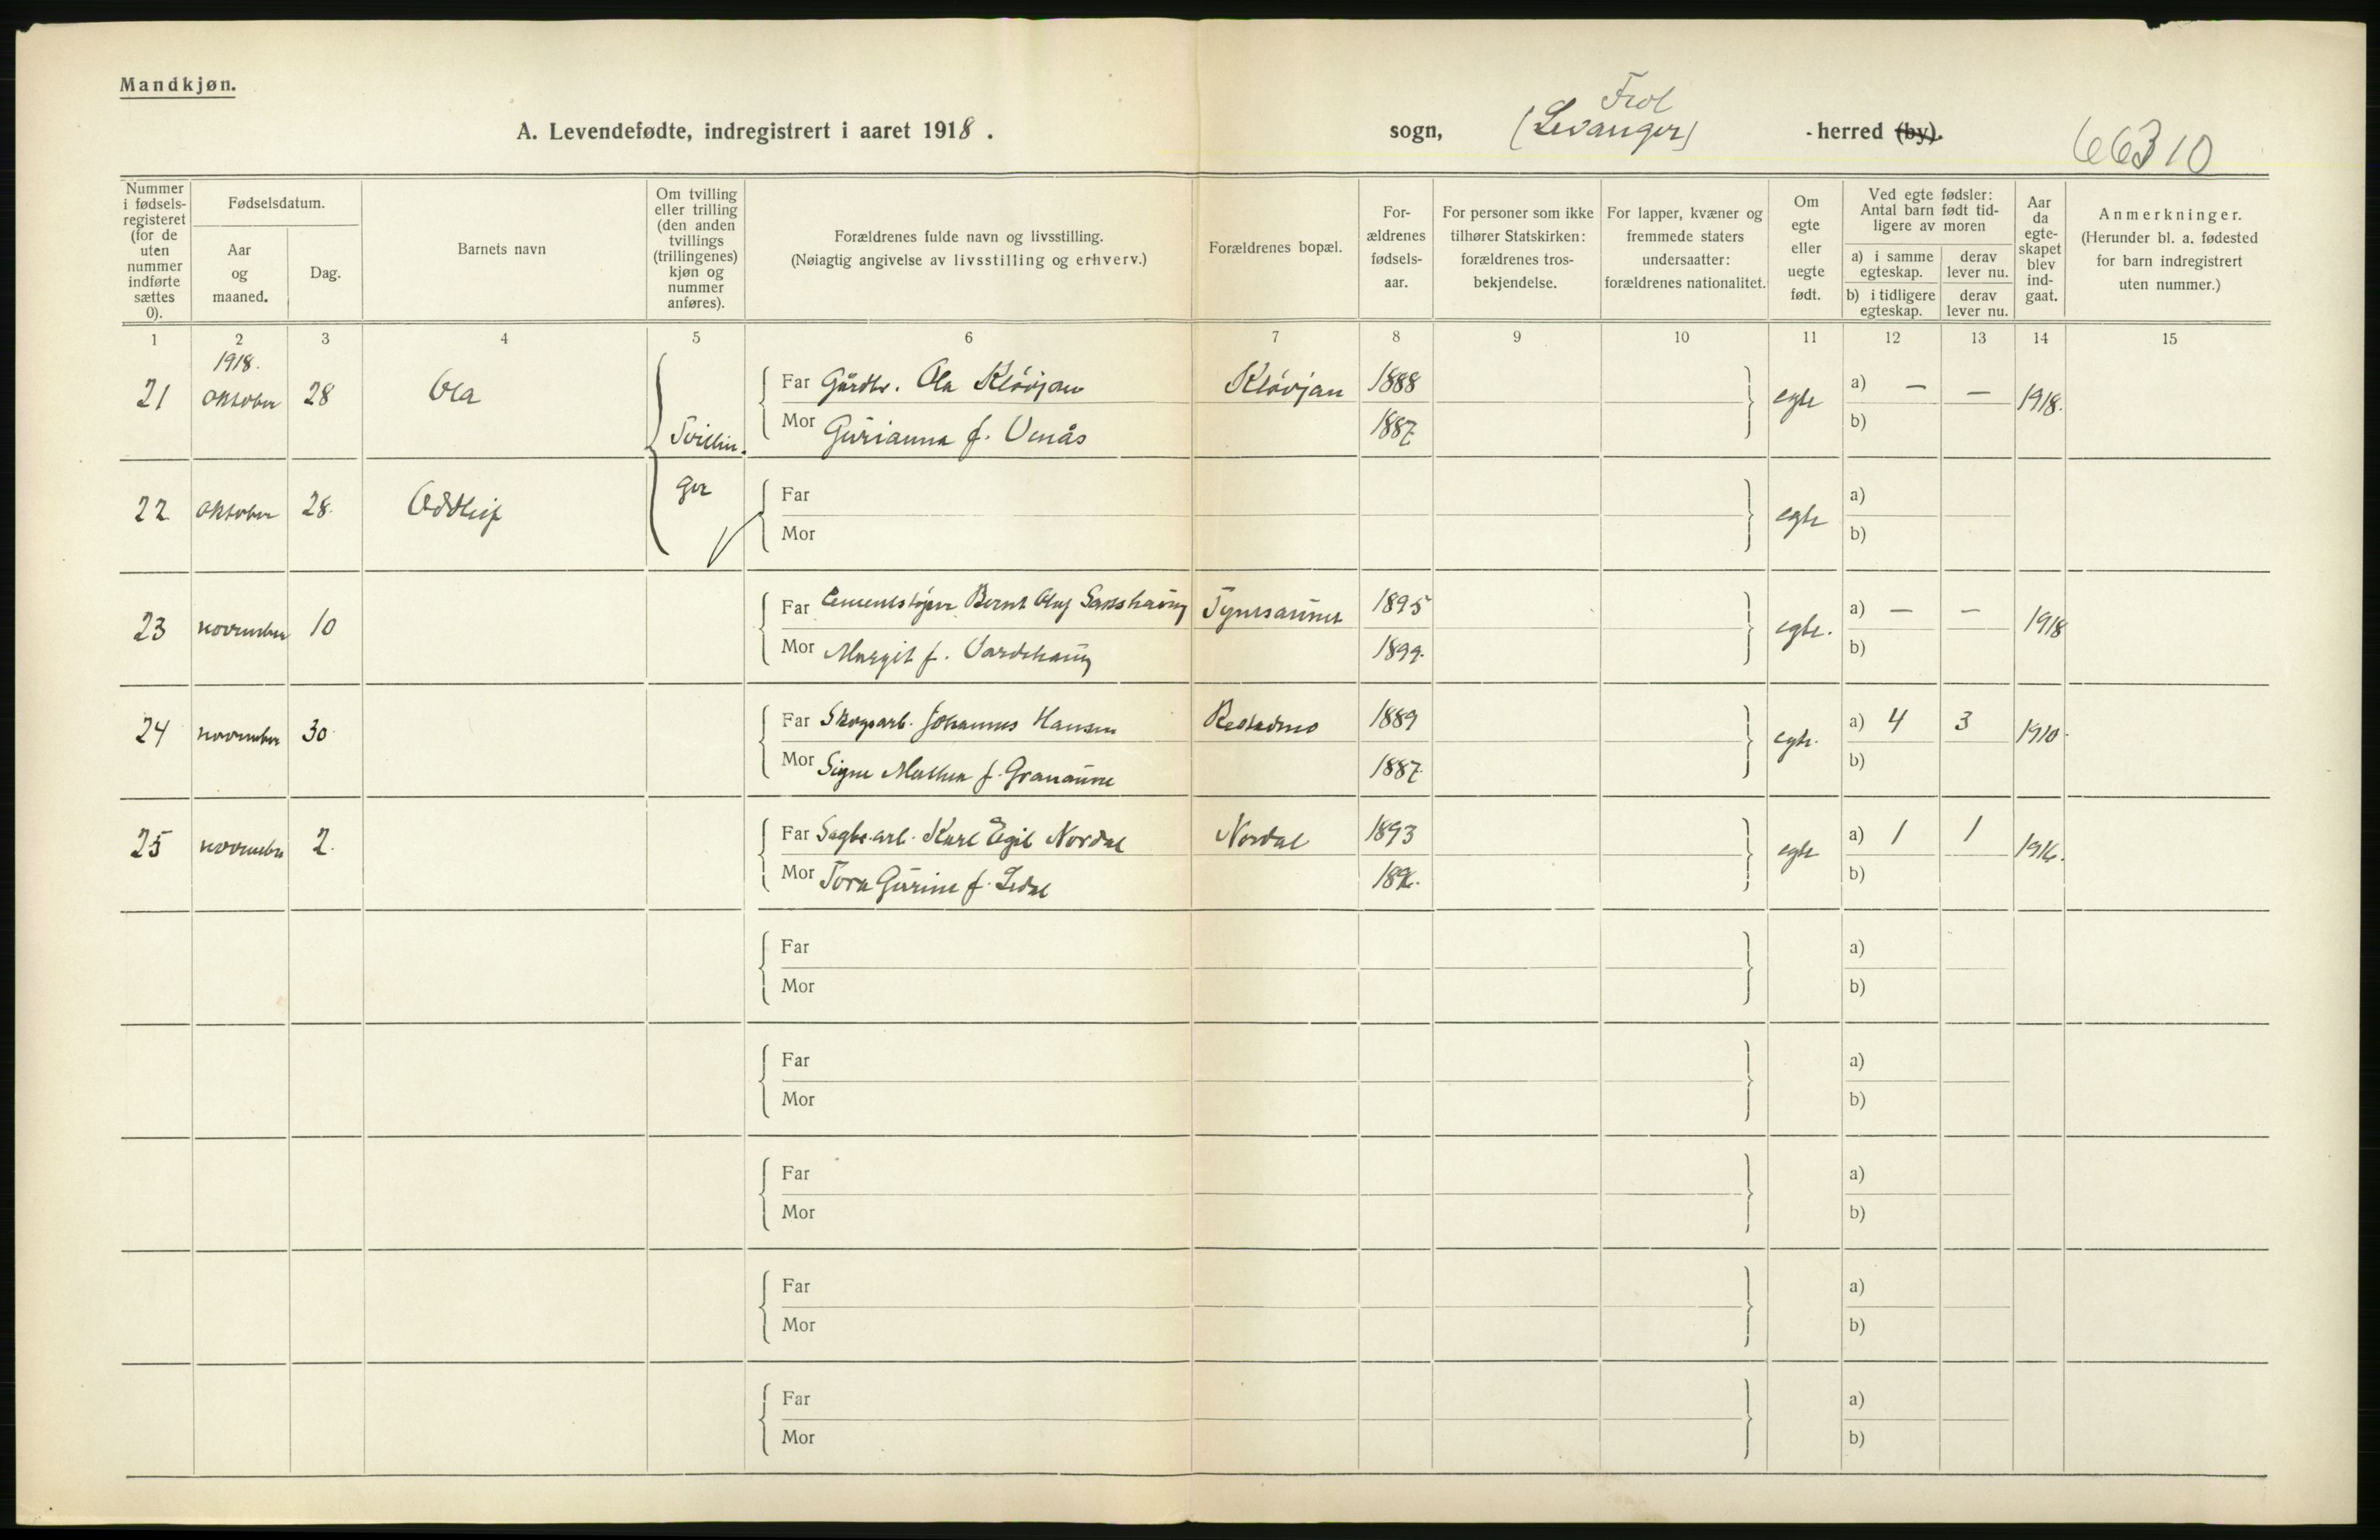 Mandkjøn.
A. Levendefødte, indregistrert i aaret 1918.
sogn, Frol (Levanger) -herred (by).
66310
Nummer i fødsels-registeret (for de uten nummer indførte sættes 0).
Fødselsdatum.
Aar og maaned.
Dag.
Barnets navn
Om tvilling eller trilling (den anden tvillings (trillingenes) kjøn og nummer anføres).
Forældrenes fulde navn og livsstilling.
(Nøiagtig angivelse av livsstilling og erhverv.)
Forældrenes bopæl.
For-ældrenes fødsels-aar.
For personer som ikke tilhører Statskirken: forældrenes tros-bekjendelse.
For lapper, kvæner og fremmede staters undersaatter: forældrenes nationalitet.
Om egte eller uegte født.
Ved egte fødsler: Antal barn født tid-ligere av moren
a) i samme egteskap.
derav lever nu.
b) i tidligere egteskap.
derav lever nu.
Aar da egte-skapet blev ind-gaat.
Anmerkninger.
(Herunder bl. a. fødested for barn indregistrert uten nummer.)
1 2 3 4 5 6 7 8 9 10 11 12 13 14 15
1918.
21 oktober 28 Ola Tvillin- Far Gårdbr. Ola Kløvjan Kløvjan 1888 egte a) — — 1918.
Mor Gurianna f. Venås 1887 b)
22 oktober 28. Oddleif ger Far egte a)
Mor b)
23 november 10 Far Cementstøper Bernt Olaf Sakshaug Tynesaunet 1895 egte. a) — — 1918
Mor Margit f. Vardehaug 1899. b)
24 november 30 Far Skogsarb. Johannes Hansen 1889 egte. a) 4 3 1910.
Mor Signe f. Granaune 1887 b)
25 november 2. Far Sagbr.arb. Karl Egil Nordal Nordal 1893 egte a) 1 1 1916.
Mor Tora Gurine f. b)
Far a)
Mor b)
Far a)
Mor b)
Far a)
Mor b)
Far a)
Mor b)
Far a)
Mor b)